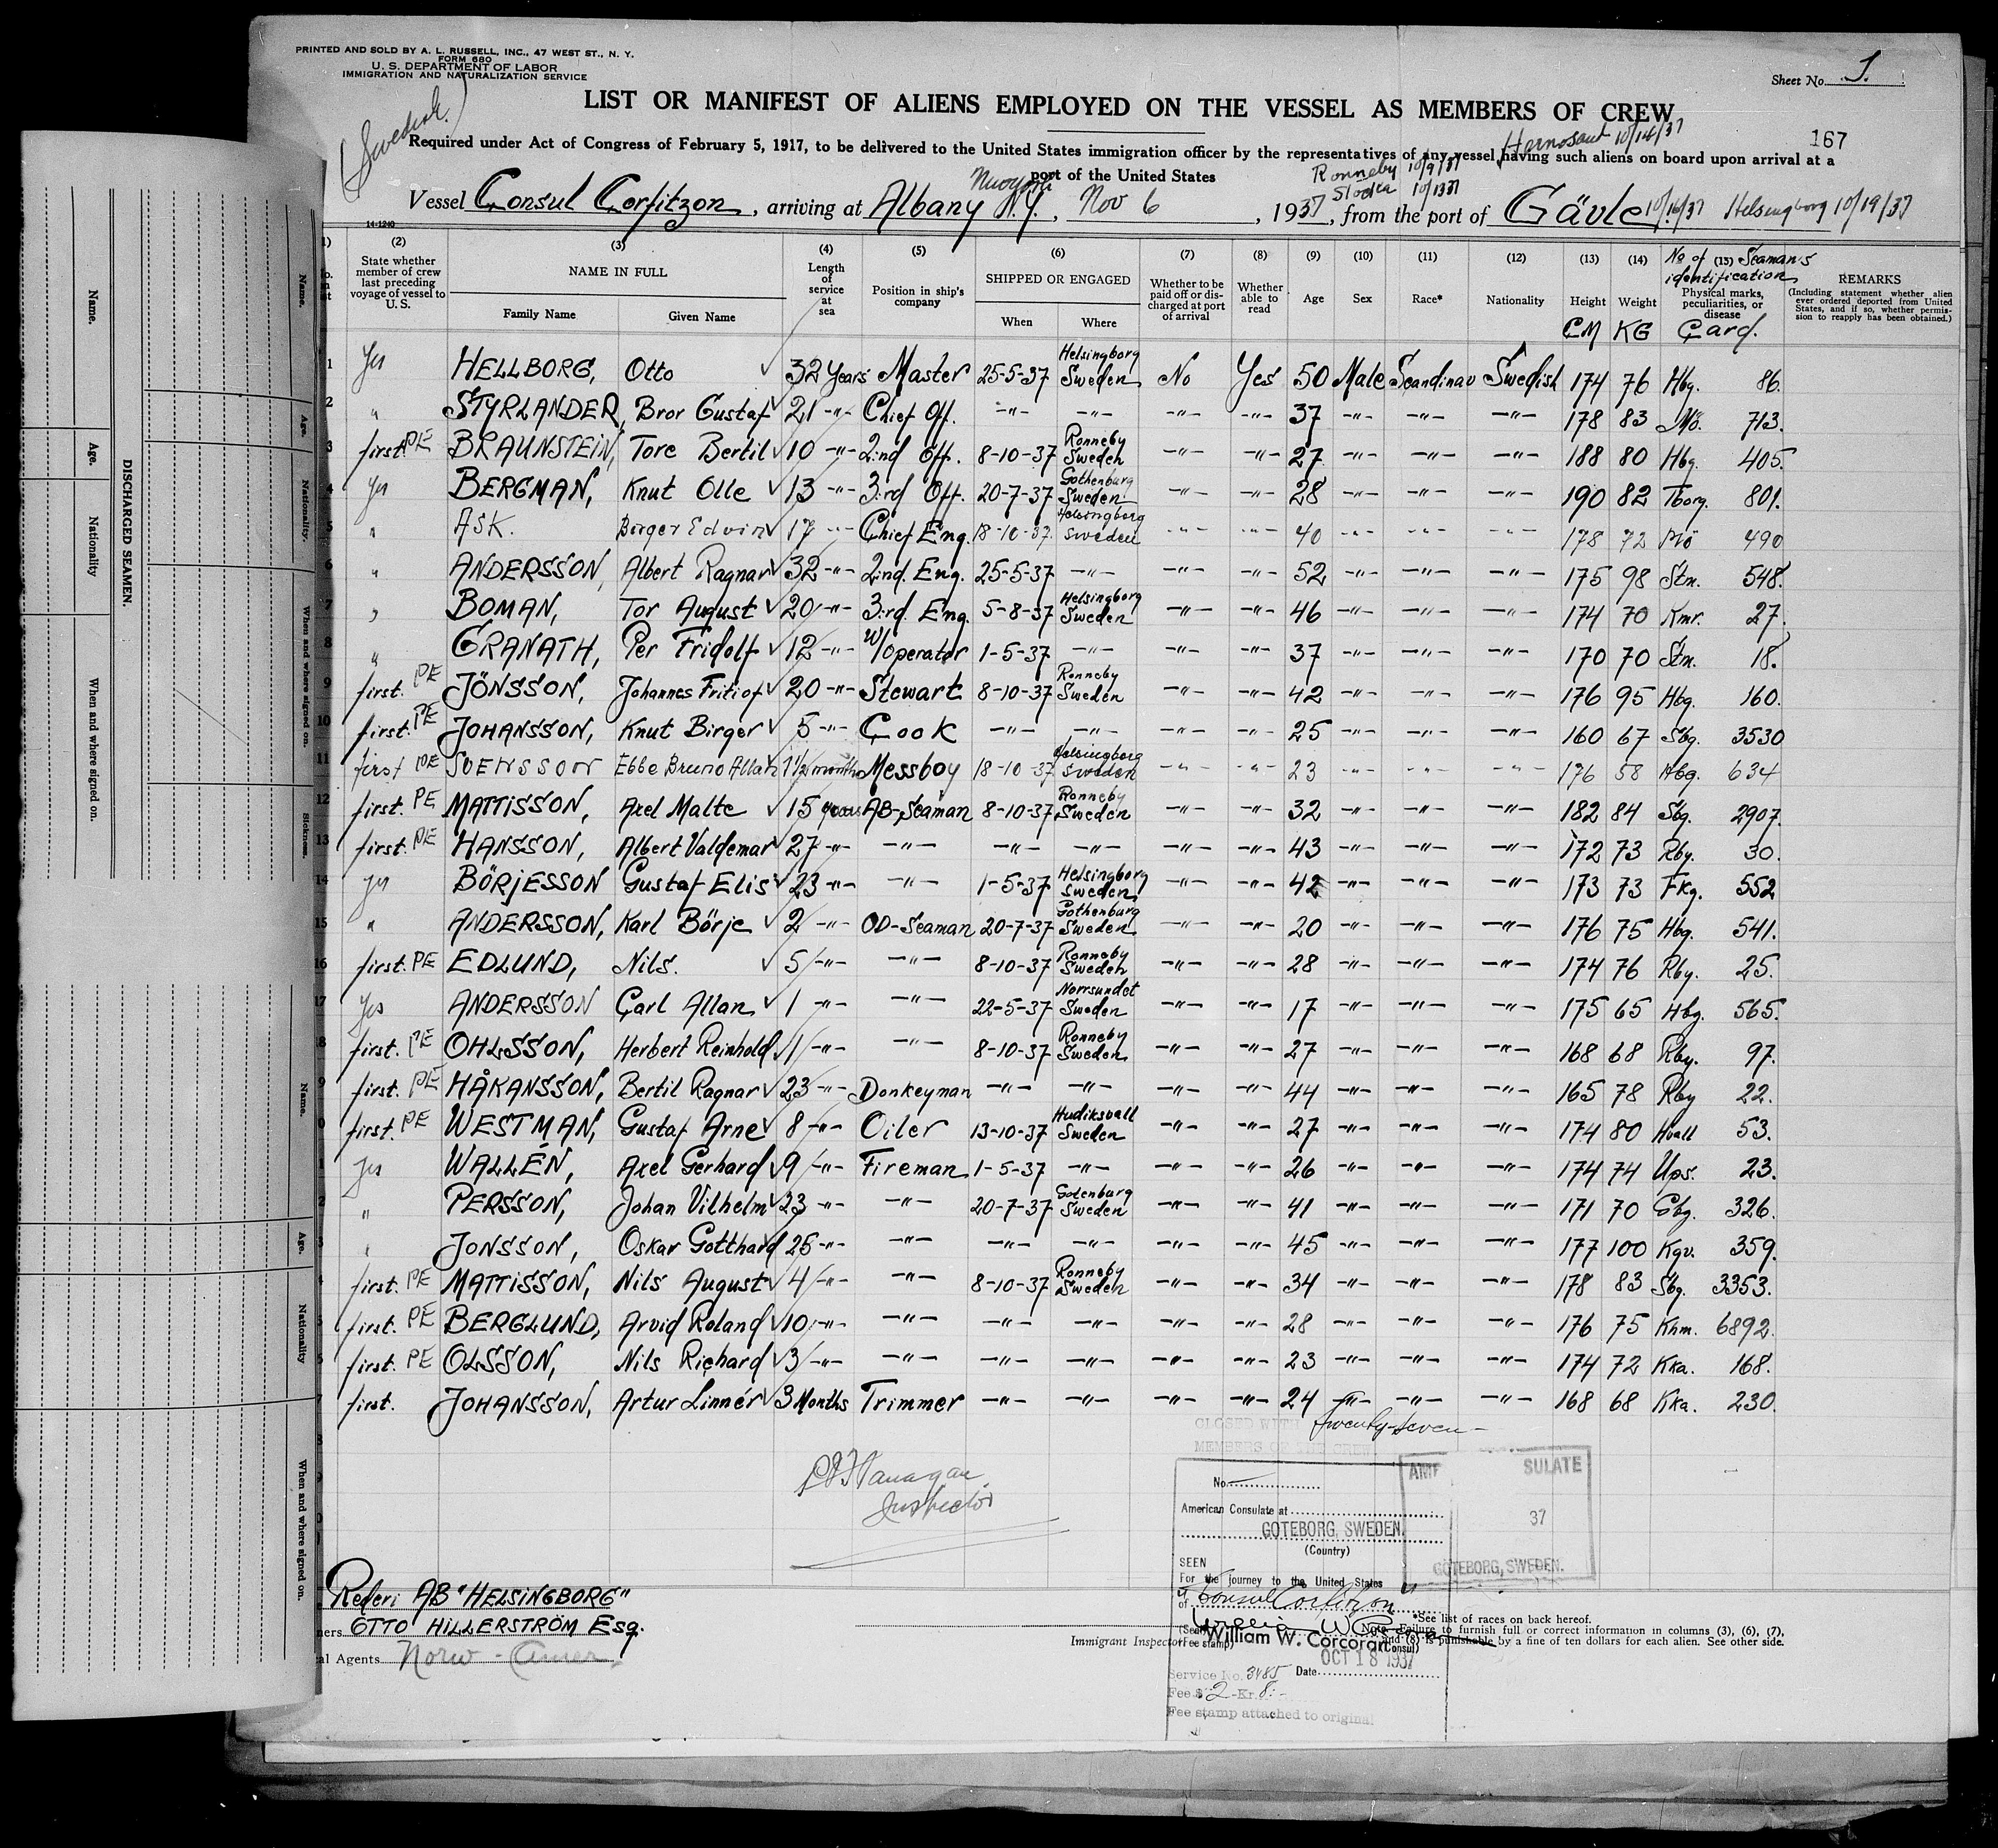 PRINTED AND SOLD BY A. L. RUSSELL, INC., 47 WEST ST., N. Y.
FORM 680
U. S. DEPARTMENT OF LABOR
IMMIGRATION AND NATURALIZATION SERVICE
Sheet No. 1.
(Swedish)
LIST OR MANIFEST OF ALIENS EMPLOYED ON THE VESSEL AS MEMBERS OF CREW
Harnosand 10/14/37
167
Required under Act of Congress of February 5, 1917, to be delivered to the United States immigration officer by the representatives of any vessel having such aliens on board upon arrival at a
port of the United States
Ronneby 10/9/37
Stocka 10/13/37
Vessel Consul Corfitzon, arriving at Albany N.Y., Nov 6, 1937, from the port of Gävle 10/16/37 Helsingborg 10/19/37
14-1240
(2) (3) (4) (5) (6) (7) (8) (9) (10) (11) (12) (13) (14) (15)
State whether member of crew last preceding voyage of vessel to U. S.
NAME IN FULL
Family Name Given Name
Length of service at sea
Position in ship's company
SHIPPED OR ENGAGED
When Where
Whether to be paid off or discharged at port of arrival
Whether able to read
Age
Sex
Race*
Nationality
Height CM
Weight KG
No of Seaman's identification Card.
Physical marks, peculiarities, or disease
REMARKS
(Including statement whether alien ever ordered deported from United States, and if so, whether permission to reapply has been obtained.)
1 Yes HELLBORG, Otto 32 Years Master 25-5-37 Helsingborg Sweden No Yes 50 Male Scandinav Swedish 174 76 Hbg. 86.
2 " STYRLANDER, Bror Gustaf 21 -"- Chief Off. -"- -"- -"- -"- 37 -"- -"- -"- 178 83 Mö. 713.
3 first. PE BRAUNSTEIN, Tore Bertil 10 -"- 2:nd Off. 8-10-37 Ronneby Sweden -"- -"- 27 -"- -"- -"- 188 80 Hbg. 405.
4 Yes BERGMAN, Knut Olle 13 -"- 3:rd Off. 20-7-37 Gothenburg Sweden -"- -"- 28 -"- -"- -"- 190 82 Tborg. 801.
5 " ASK. Birger Edvin 17 -"- Chief Eng. 18-10-37. Helsingborg Sweden -"- -"- 40 -"- -"- -"- 178 72 Mö 490
6 " ANDERSSON, Albert Ragnar 32 -"- 2:nd. Eng. 25-5-37 -"- -"- -"- 52 -"- -"- -"- 175 98 Stm. 548.
7 " BOMAN, Tor August 20 -"- 3:rd. Eng. 5-8-37 Helsingborg Sweden -"- -"- 46 -"- -"- -"- 174 70 Kmr. 27.
8 " GRANATH, Per Fridolf 12 -"- W/Operator 1-5-37 -"- -"- -"- 37 -"- -"- -"- 170 70 Stm. 18.
9 first. PE JÖNSSON, Johannes Fritiof 20 -"- Stewart 8-10-37 Ronneby Sweden -"- -"- 42 -"- -"- -"- 176 95 Hbg. 160.
10 first. PE JOHANSSON, Knut Birger 5 -"- Cook -"- -"- -"- -"- 25 -"- -"- -"- 160 67 Sbg. 3530
11 first PE SVENSSON Ebbe Bruno Allan 1 1/2 months Messboy 18-10-37 Helsingborg Sweden -"- -"- 23 -"- -"- -"- 176 58 Hbg. 634
12 first. PE MATTISSON, Axel Malte 15 years AB-Seaman 8-10-37 Ronneby Sweden -"- -"- 32 -"- -"- -"- 182 84 Sbg. 2907.
13 first. PE HANSSON, Albert Valdemar 27 -"- -"- -"- -"- -"- -"- 43 -"- -"- -"- 172 73 Rby. 30.
14 Yes BÖRJESSON Gustaf Elis 23 -"- -"- 1-5-37 Helsingborg Sweden -"- -"- 42 -"- -"- -"- 173 73 Fkg. 552
15 " ANDERSSON, Karl Börje 2 -"- OD-Seaman 20-7-37 Gothenburg Sweden -"- -"- 20 -"- -"- -"- 176 75 Hbg. 541.
16 first. PE EDLUND, Nils. 5 -"- -"- 8-10-37 Ronneby Sweden -"- -"- 28 -"- -"- -"- 174 76 Rby. 25.
17 Yes ANDERSSON Carl Allan 1 -"- -"- 22-5-37 Norrsundet Sweden -"- -"- 17 -"- -"- -"- 175 65 Hbg. 565.
8 first. PE OHLSSON, Herbert Reinhold 1 -"- -"- 8-10-37 Ronneby Sweden -"- -"- 27 -"- -"- -"- 168 68 Rby. 97.
9 first. PE HÅKANSSON, Bertil Ragnar 23 -"- Donkeyman -"- -"- -"- -"- 44 -"- -"- -"- 165 78 Rby 22.
0 first. PE WESTMAN, Gustaf Arne 8 -"- Oiler 13-10-37 Hudiksvall Sweden -"- -"- 27 -"- -"- -"- 174 80 Hvall 53.
1 Yes WALLÉN, Axel Gerhard 9 -"- Fireman 1-5-37 -"- -"- -"- 26 -"- -"- -"- 174 74 Ups. 23.
2 " PERSSON, Johan Vilhelm 23 -"- -"- 20-7-37 Gotenburg Sweden -"- -"- 41 -"- -"- -"- 171 70 Gbg. 326.
3 " JONSSON, Oskar Gotthard 25 -"- -"- -"- -"- -"- -"- 45 -"- -"- -"- 177 100 Kgv. 359.
4 first. PE MATTISSON, Nils August 4 -"- -"- 8-10-37 Ronneby Sweden -"- -"- 34 -"- -"- -"- 178 83 Sbg. 3353.
5 first. PE BERGLUND, Arvid Roland 10 -"- -"- -"- -"- -"- -"- 28 -"- -"- -"- 176 75 Khm. 6892.
6 first. PE OLSSON, Nils Richard 3 -"- -"- -"- -"- -"- -"- 23 -"- -"- -"- 174 72 Kka. 168.
7 first. JOHANSSON, Artur Linnér 3 Months Trimmer -"- -"- -"- -"- 24 -"- -"- -"- 168 68 Kka. 230.
CLOSED WITH twenty-seven
MEMBERS OF THE CREW
Flanagan
Inspector
No.
American Consulate at
GOTEBORG, SWEDEN.
(Country)
SEEN
For the journey to the United States
of Consul Corfitzon
William W. Corcoran
(Consul)
(Fee stamp)
OCT 18 1937
Date
Service No. 3485
Fee $ 2 - Kr. 8:-
Fee stamp attached to original
SULATE
37
GOTEBORG, SWEDEN.
Rederi AB "HELSINGBORG"
OTTO HILLERSTRÖM Esq.
Agents Norw - Amer.
Immigrant Inspector
*See list of races on back hereof.
Note.—Failure to furnish full or correct information in columns (3), (6), (7), and (8) is punishable by a fine of ten dollars for each alien. See other side.
DISCHARGED SEAMEN.
Name.
Age.
Nationality
When and where signed on.
Name.
Age.
Nationality.
When and where signed on.
Sickness.
Name.
Age.
Nationality
When and where signed on.